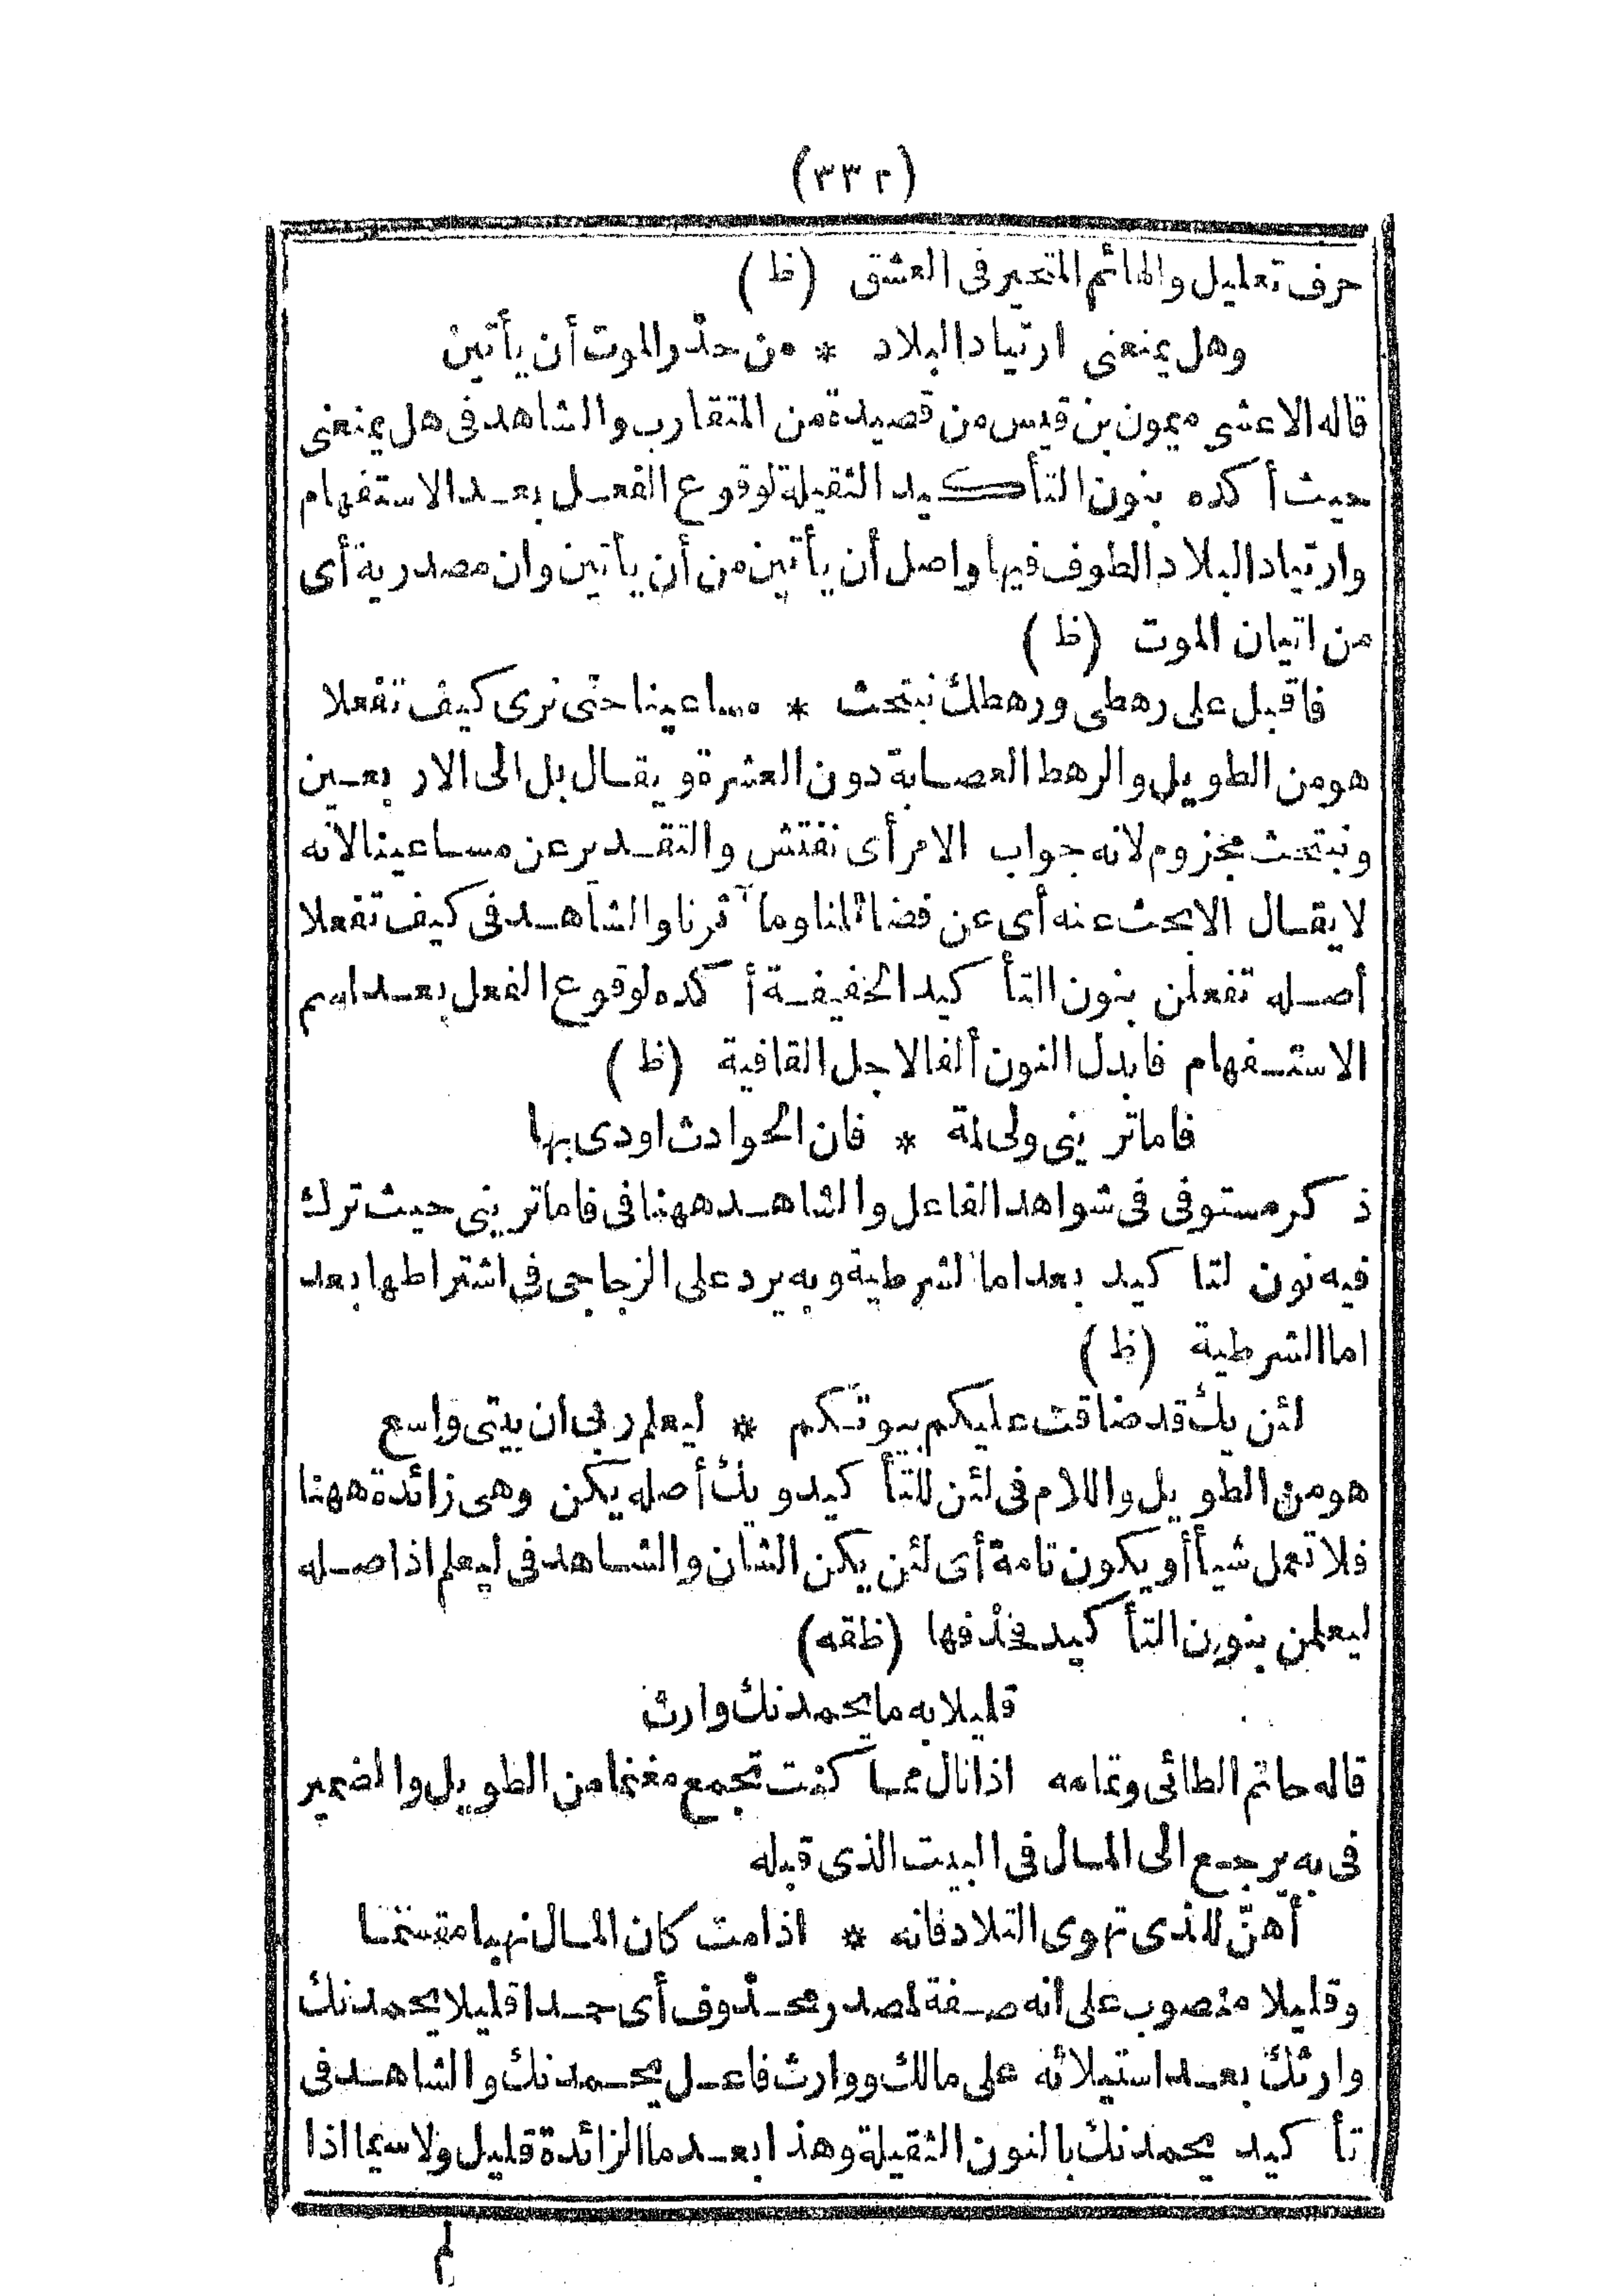 (٣٣٢)
حرف تعليل والهائم المتحير فى العشق (ظ)
وهل يمنعنى ارتياد البلاد * من حذر الموت أن يأتين
قاله الاعشى ميمون بن قيس من قصيدة من المتقارب والشاهد فى هل يمنعنى
حيث أكده بنون التأكيد الثقيلة لوقوع الفعل بعد الاستفهام
وارتياد البلاد الطوف فيها واصل أن يأتين من أن يأتين وان مصدرية أى
من اتيان الموت (ظ)
فاقبل على رهطى ورهطك نبتحث * مساعينا حتى نرى كيف تفعلا
هو من الطويل والرهط العصابة دون العشرة ويقال بل الى الاربعين
ونبتحث مجزوم لانه جواب الامر أى نفتش والتقدير عن مساعينا لانه
لا يقال الا بحث عنه أى عن فضائلنا ومآثرنا والشاهد فى كيف تفعلا
أصله تفعلن بنون التأكيد الخفيفة أكده لوقوع الفعل بعد اسم
الاستفهام فابدل النون ألفا لاجل القافية (ظ)
فاما ترينى ولى لمة * فان الحوادث اودى بها
ذكر مستوفى فى شواهد الفاعل والشاهد ههنا فى فاما ترينى حيث ترك
فيه نون لتاكيد بعد اما لشرطية وبه يرد على الزجاجى فى اشتراطها بعد
اما الشرطية (ظ)
لئن يك قد ضاقت عليكم بيوتكم * ليعلم ربى ان بيتى واسع
هو من الطويل واللام فى لئن للتأكيد ويك أصله يكن وهى زائدة ههنا
فلا تعمل شيأ أو يكون تامة أى لئن يكن الشان والشاهد فى ليعلم اذ اصله
ليعلمن بنون التأكيد فحذفها (ظقه)
قليلا به ما يحمدنك وارث
قاله حاتم الطائى وتمامه اذا نال مما كنت تجمع مغنما من الطويل والضمير
فى به يرجع الى المال فى البيت الذى قبله
أهنّ للذى تهوى التلاد فانه * اذا مت كان المال نهبا مقسما
وقليلا منصوب على انه صفة لمصدر محذوف أى حمدا قليلا يحمدنك
وارثك بعد استيلائه على مالك ووارث فاعل يحمدنك والشاهد فى
تأكيد يحمدنك بالنون الثقيلة وهذا بعد ما الزائدة قليل ولا سيما اذا
لم